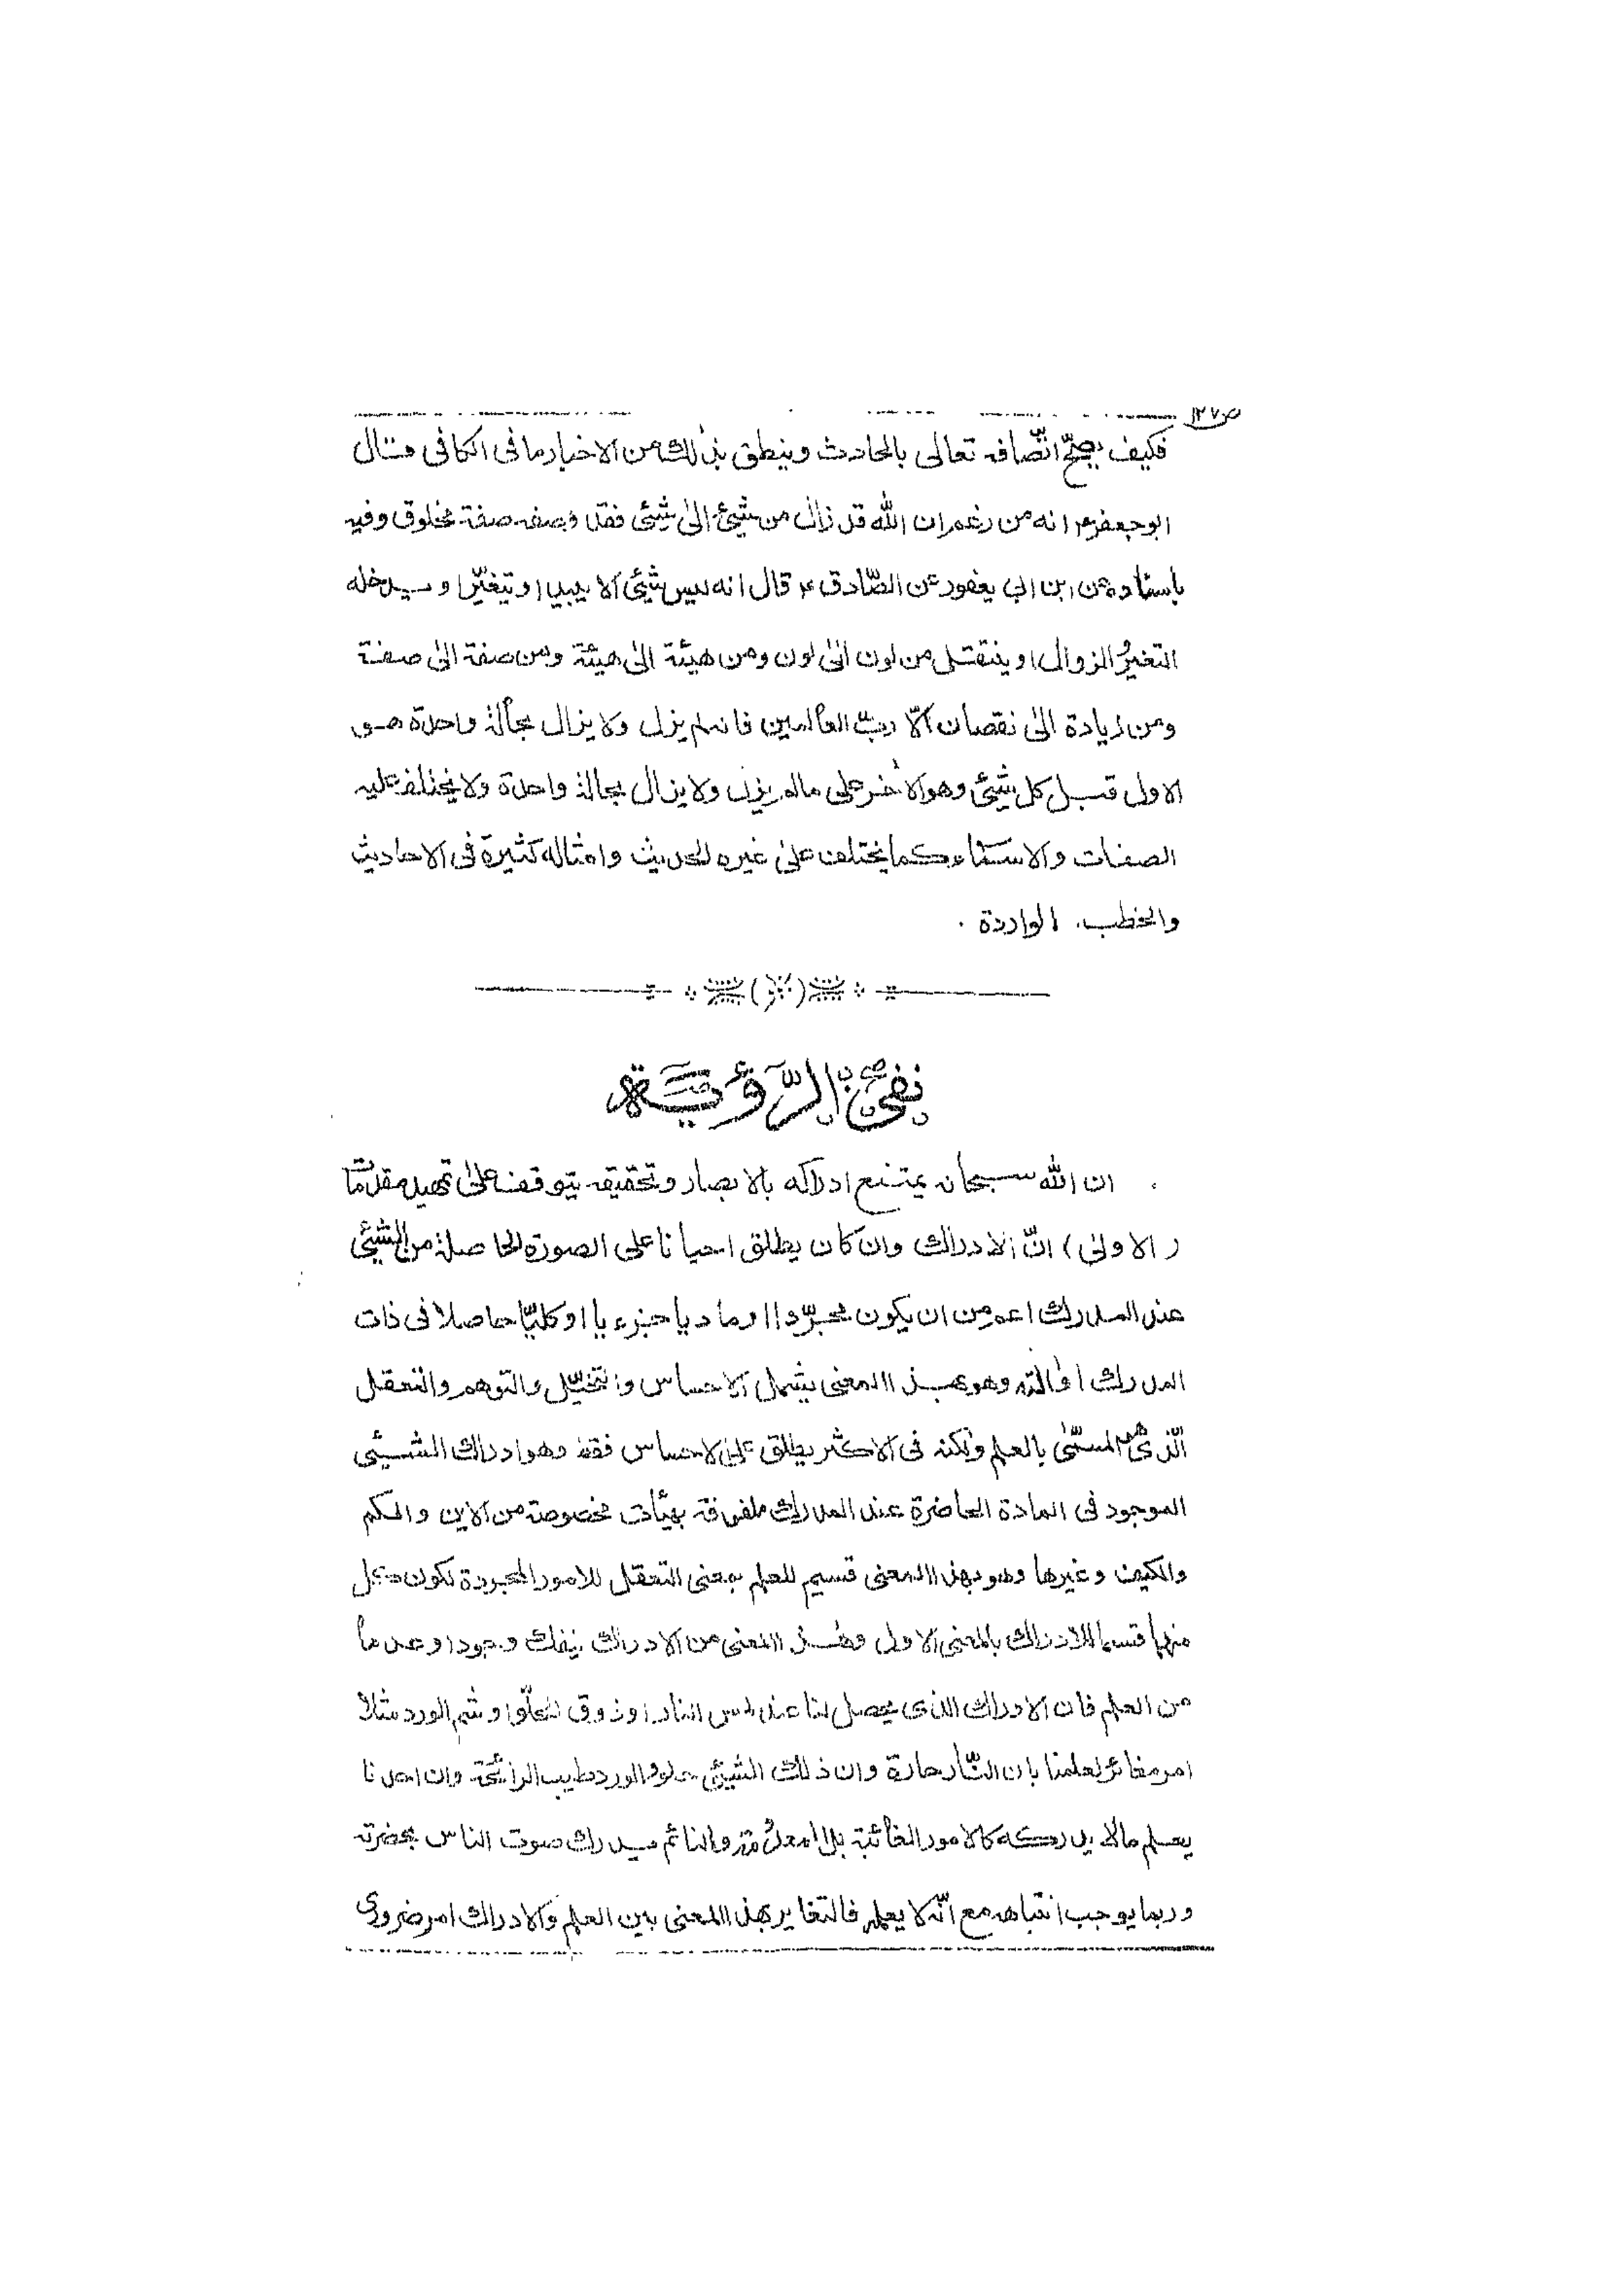 ص١٢٧
فكيف يصحّ اتّصافه تعالى بالحادث وينطق بذلك من الاخبار ما فى الكافى قال
ابو جعفرؑ انه من زعم ان الله قد زال من شيئ الى شيئ فقد وصفه صفة مخلوق وفيه
باسناده عن ابن ابي يعفور عن الصّادقؑ قال انه ليس شيئ الا يبيد او يتغيّر او يدخله
التغيرُ الزوال او ينتقل من لون الى لون ومن هيئة الى هيئة ومن صفة الى صفة
ومن زيادة الى نقصان الّا ربّ العالمين فانه لم يزل ولا يزال بحالة واحدة هو
الاول قبل كل شيئ وهو الاخر على ما لم يزل ولا يزال بحالة واحدة ولا يختلف عليه
الصفات والاسماء كما يختلف على غيره الحديث وامثاله كثيرة فى الاحاديث
والخطب الواردة .
نفى الرّؤية
ان الله سبحانه يمتنع ادراكه بالابصار وتحقيقه يتوقف على تمهيد مقدمات
(الاولى) انّ الادراك وان كان يطلق احيانا على الصورة الحاصلة من الشيئ
عند المدرك اعم من ان يكون مجرّدا او ماديا جزءيا او كليّا حاصلا فى ذات
المدرك او آلته وهو بهذا المعنى يشمل الاحساس والتخيّل والتوهم والتعقل
الّذى المسمّى بالعلم ولكنه فى الاكثر يطلق على الاحساس فقط وهو ادراك الشيئ
الموجود فى المادة الحاضرة عند المدرك ملفوفة بهيئات مخصوصة من الاين والكم
والكيف وغيرها وهو بهذا المعنى قسيم للعلم بمعنى التعقل للامور المجردة لكون كل
منهما قسما للادراك بالمعنى الاول وهذا المعنى من الادراك ينفك وجودا وعدما
من العلم فان الادراك الذى يحصل لنا عند لمس النار او ذوق الحلو او شم الورد مثلا
امر مغائر لعلمنا بان النّار حارة وان ذلك الشيئ حلو والورد طيب الرائحة وان احدنا
يعلم مالا يدركه كالامور الغائبة بل المعدومة والنائم يدرك صوت الناس بحضرته
وربما يوجب انتباهه مع انّه لا يعلم فالتغاير بهذا المعنى بين العلم والادراك امر ضرورى